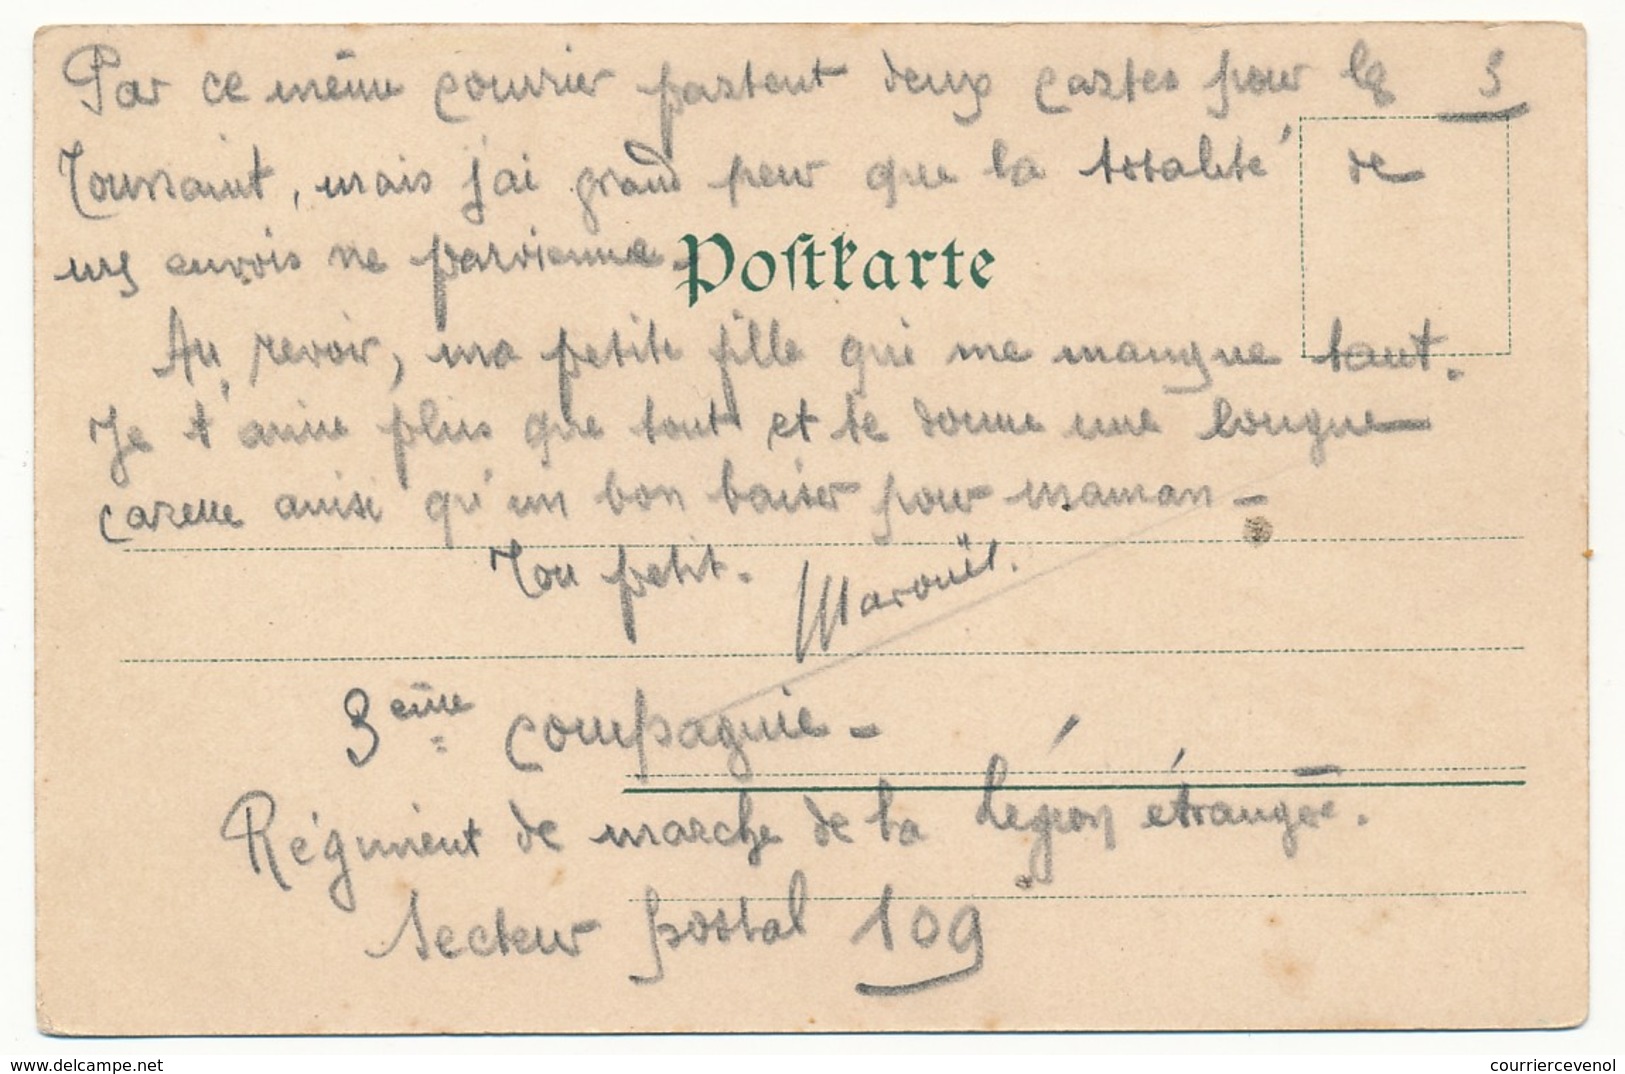 Par ce même courrier partent deux cartes pour la 5
Toussaint, mais j'ai grand peur que la totalité de
mes envois ne parvienne.
Postkarte
Au revoir, ma petite fille qui me manque tant.
Je t'aime plus que tout et te donne une longue
caresse ainsi qu'un bon baiser pour maman -
Ton petit. Marouët.
3ème compagnie -
Régiment de marche de la Légion étrangère.
Secteur postal 109
www.courriercevenol.fr
courriercevenol.com